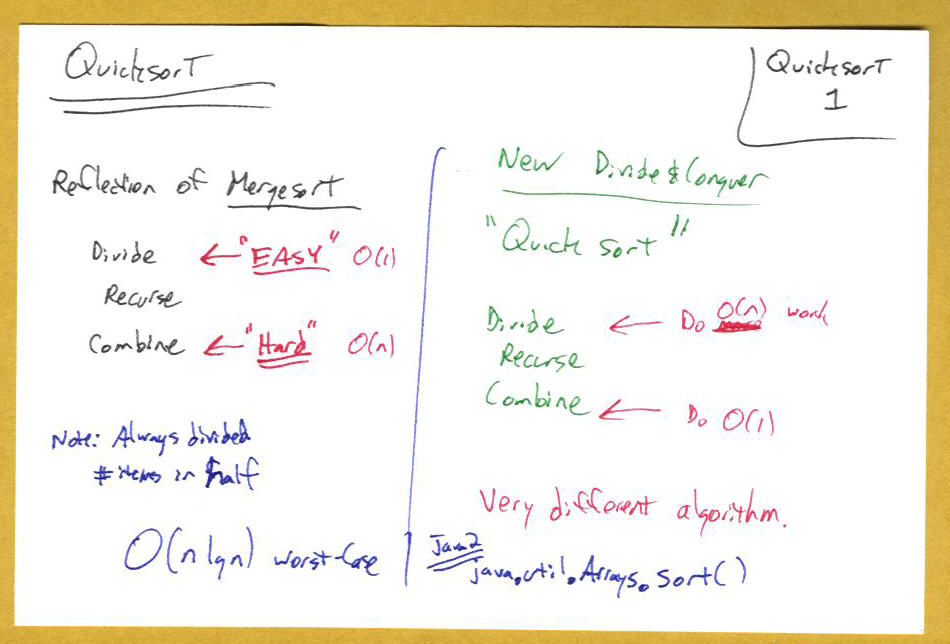 Quicksort
Quicksort
1
Reflection of Mergesort
Divide ← "EASY" O(1)
Recurse
Combine ← "Hard" O(n)
Note: Always divided
# items in half
O(n lg n) worst-case
New Divide & Conquer
"Quick sort"
Divide ← Do O(n) work
Recurse
Combine ← Do O(1)
Very different algorithm.
Java2
java.util.Arrays.sort()